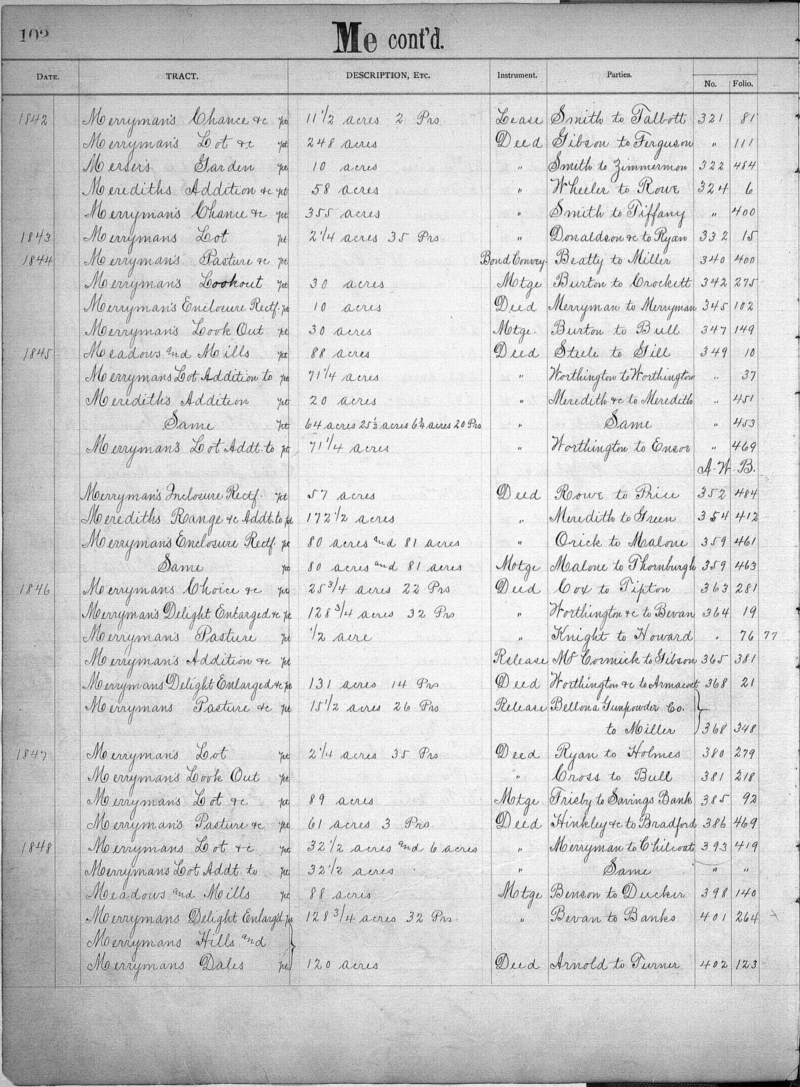 102
Me cont'd.
DATE. TRACT. DESCRIPTION, ETC. Instrument. Parties. No. Folio.
1842 Merryman's Chance &c pt 11 1/2 acres 2 Prs Lease Smith to Talbott 321 81
Merryman's Lot &c pt 248 acres Deed Gibson to Ferguson " 111
Merser's Garden pt 10 acres " Smith to Zimmermon 322 484
Merediths Addition &c pt 58 acres " Wheeler to Rowe 324 6
Merryman's Chance &c pt 355 acres " Smith to Tiffany " 400
1843 Merrymans Lot pt 2 1/4 acres 35 Prs " Donaldson &c to Ryan 332 15
1844 Merryman's Pasture &c pt Bond Convey Beatty to Miller 340 400
Merrymans Lookout pt 30 acres Mtge Burton to Crockett 342 275
Merryman's Enclosure Rectf. pt 10 acres Deed Merryman to Merryman 345 102
Merryman's Look Out pt 30 acres Mtge. Burton to Bull 347 149
1845 Meadows and Mills pt 88 acres Deed Steele to Gill 349 10
Merrymans Lot Addition to pt 71 1/4 acres " Worthington to Worthington " 37
Merediths Addition pt 20 acres " Meredith &c to Meredith " 451
Same pt 64 acres 25 1/2 acres 6 3/4 acres 20 Prs " Same " 453
Merryman's Lot Addt. to pt 71 1/4 acres " Worthington to Ensor " 469
A. W. B.
Merryman's Inclosure Rectf. pt 57 acres Deed Rowe to Price 352 484
Merediths Range &c Addt. to pt 172 1/2 acres " Meredith to Green 354 412
Merryman's Enclosure Rectf pt 80 acres and 81 acres " Orick to Malone 359 461
Same pt 80 acres and 81 acres Motge Malone to Thornburgh 359 463
1846 Merrymans Choice &c pt 25 3/4 acres 22 Prs Deed Cox to Tipton 363 281
Merryman's Delight Enlarged &c pt 128 3/4 acres 32 Prs " Worthington &c to Bevan 364 19
Merrymans Pasture pt 1/2 acre " Knight to Howard " 76 77
Merryman's Addition &c pt Release McCormick to Gibson 365 381
Merrymans Delight Enlarged &c pt 131 acres 14 Prs Deed Worthington &c to Armacost 368 21
Merrymans Pasture &c pt 15 1/2 acres 26 Prs Release Bellona Gunpowder Co.
to Miller 368 348
1847 Merrymans Lot pt 2 1/4 acres 35 Prs Deed Ryan to Holmes 380 279
Merrymans Look Out pt " Cross to Bull 381 218
Merrymans Lot &c pt 89 acres Mtge Frisby to Savings Bank 385 92
Merryman's Pasture &c pt 61 acres 3 Prs. Deed Hinkley &c to Bradford 386 469
1848 Merrymans Lot &c pt 32 1/2 acres and 6 acres " Merryman to Chilcoat 393 419
Merrymans Lot Addt. to pt 32 1/2 acres " Same " "
Meadows and Mills pt 88 acres Mtge Benson to Ducker 398 140
Merrymans Delight Enlargd. pt 128 3/4 acres 32 Prs. " Bevan to Banks 401 264
Merrymans Hills and
Merrymans Dales pt 120 acres Deed Arnold to Turner 402 123